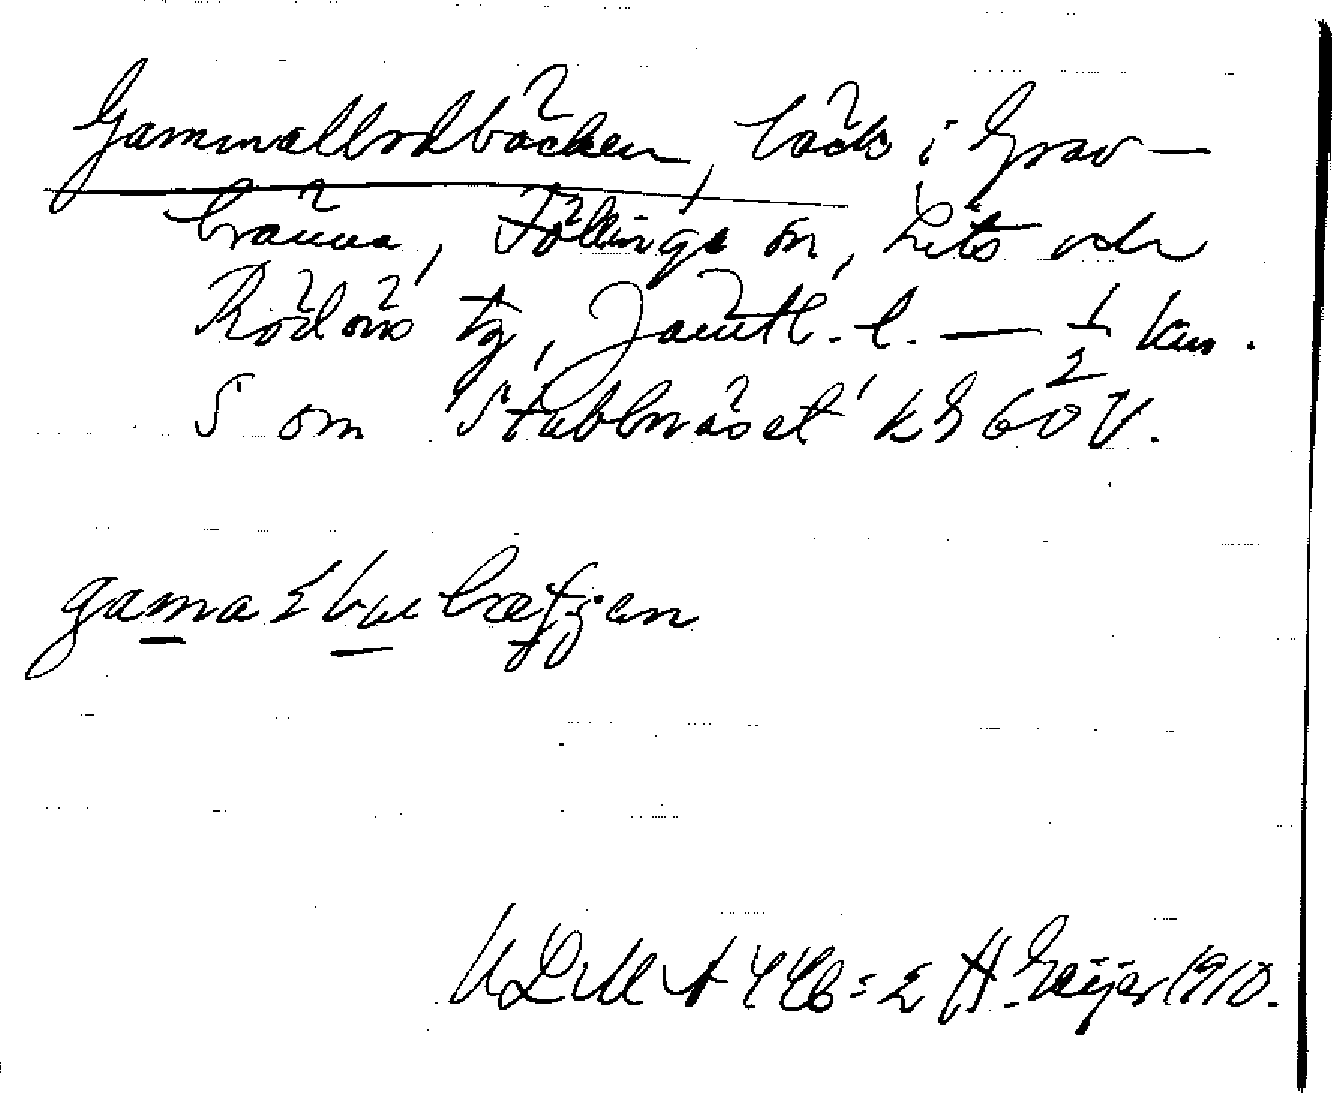 Gammalbodbäcken, bäck i Grav-
bränna, Föllinge sn, Lits och
Rödöns tg, Jämtl. l. — 1/2 km.
S om Stubbnäset kg 60 V.
gama
ULMA 446:2 H. Geijer 1910.